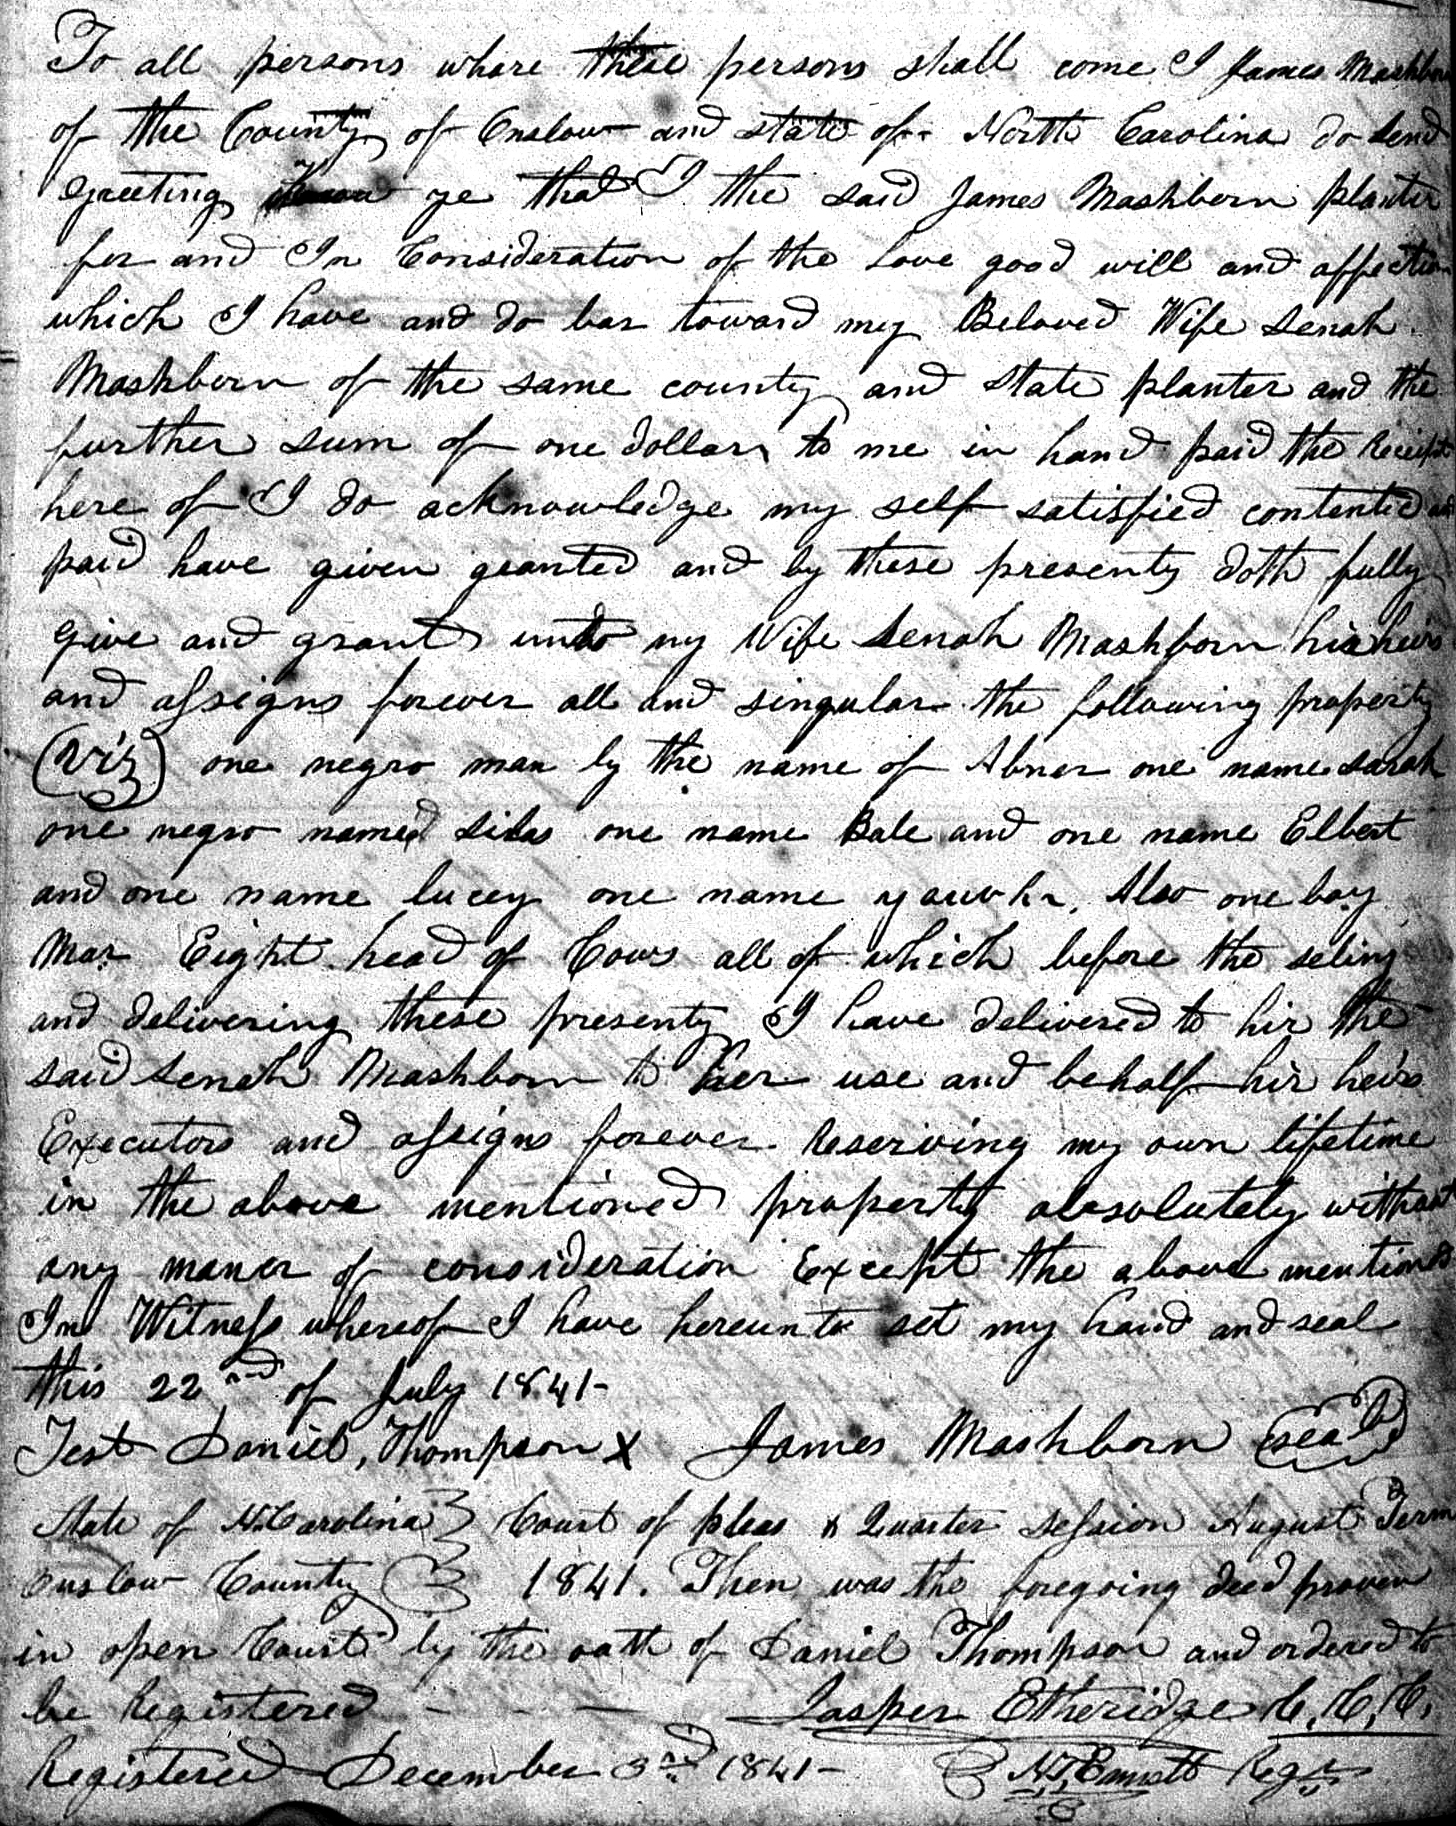 To all persons whare these persons shall come I James Mashborn
of the County of Onslow and state of North Carolina do Send
Greeting Know ye that I the said James Mashborn planter
for and In Consideration of the Love good will and affection
which I have and do bar toward my Beloved Wife Senah
Mashborn of the same county and state planter and the
further sum of one dollar to me in hand paid the Receipt
here of I do acknowledge my self satisfied contented
paid have given granted and by these presents doth fully
give and grant unto my Wife Senah Mashborn his heirs
and assigns forever all and singular the following property
(Viz) one negro man by the name of Abner one name Sarah
one negro named Silas one name Bale and one name Elbert
and one name lucey one name Also one bay
Mar Eight head of Cows all of which before the seling
and delivering these presents I have delivered to hir the
said Senah Mashborn to her use and behalf hir heirs
Executors and assigns forever Reserving my own lifetime
in the above mentioned property absolutely without
any maner of consideration Except the above mentioned
In Witness whereof I have hereunto set my hand and seal
this 22nd of July 1841-
Test Daniel, Thompson X James Mashborn Seal
State of N. Carolina Court of pleas & Quarter Session August Term
Onslow County 1841. Then was the foregoing deed proven
in open Court by the oath of Daniel Thompson and ordered to
be Registered - - - Jasper Etheridge C, C, C,
Registered December 3rd 1841- Regr